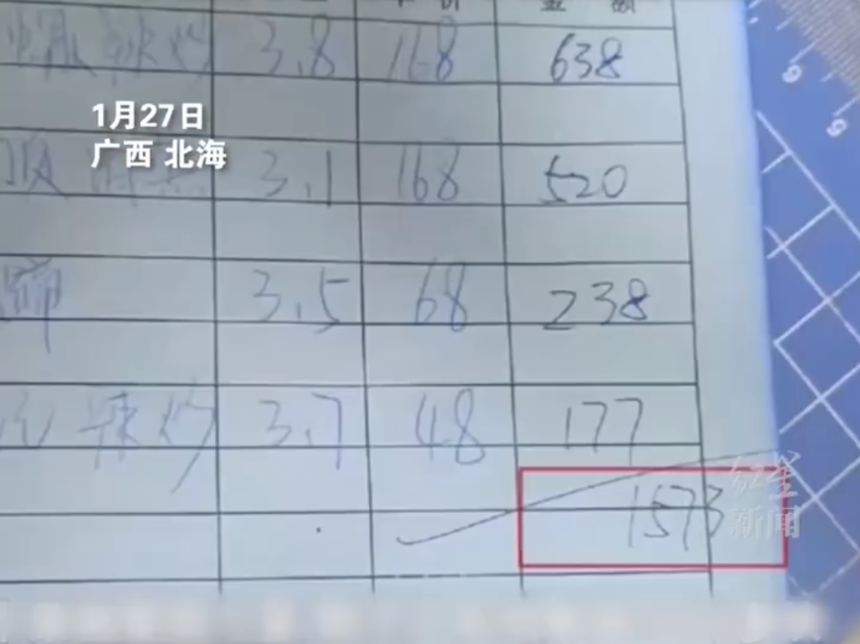 单 价 金 额
辣炒 3.8 168 638
1月27日
广西 北海
3.1 168 520
3.5 68 238
辣炒 3.7 48 177
1573
红星
新闻